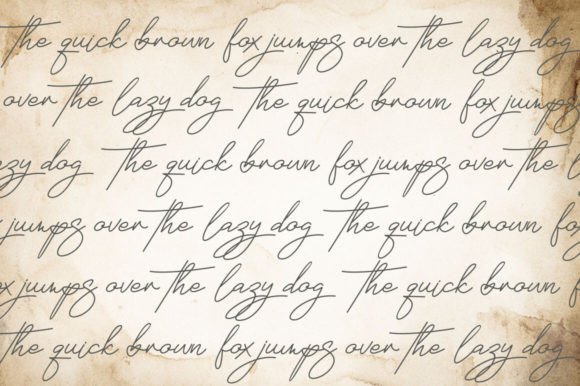 the quick brown fox jumps over the lazy dog
over the lazy dog the quick brown fox jumps
lazy dog the quick brown fox jumps over the
jumps over the lazy dog the quick brown fox
fox jumps over the lazy dog the quick brown
the quick brown fox jumps over the lazy dog